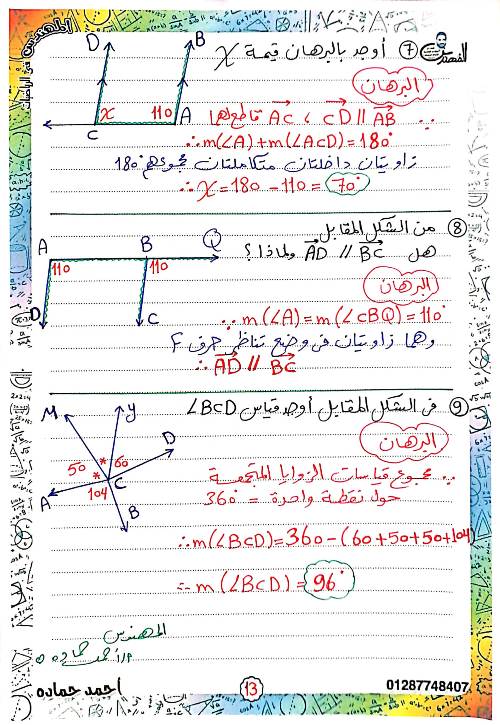 المهندس في الرياضيات
المهندس
⑦ أوجد بالبرهان قيمة X
D
B
X
110
C
A
البرهان
∵ CD // AB ، AC قاطع لهما
∴ m(∠A)+m(∠ACD)=180°
زاويتان داخلتان متكاملتان مجموعهم 180°
∴ X=180-110=70°
⑧ من الشكل المقابل
هل AD // BC ولماذا؟
A
B
Q
110
110
D
C
البرهان
∵ m(∠A)=m(∠CBQ)=110°
وهما زاويتان فى وضع تناظر حرف F
∴ AD // BC
⑨ فى الشكل المقابل أوجد قياس ∠BCD
M
y
D
50
60
C
A
104
B
البرهان
∵ مجموع قياسات الزوايا المتجمعة
حول نقطة واحدة = 360°
∴ m(∠BCD)=360-(60+50+50+104)
∴ m(∠BCD)=96°
المهندس
أ/أحمد حماده
احمد حماده
13
01287748407